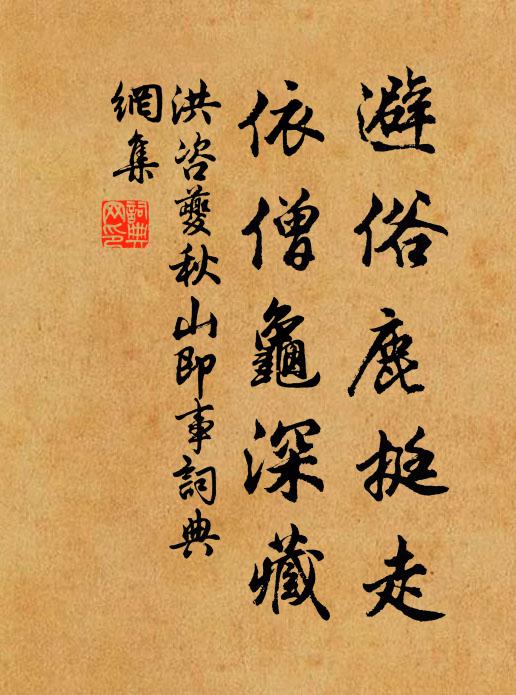 避俗鹿挺走
依僧龜深藏
洪咨夔秋山即事詞典
網集
詞典
網印